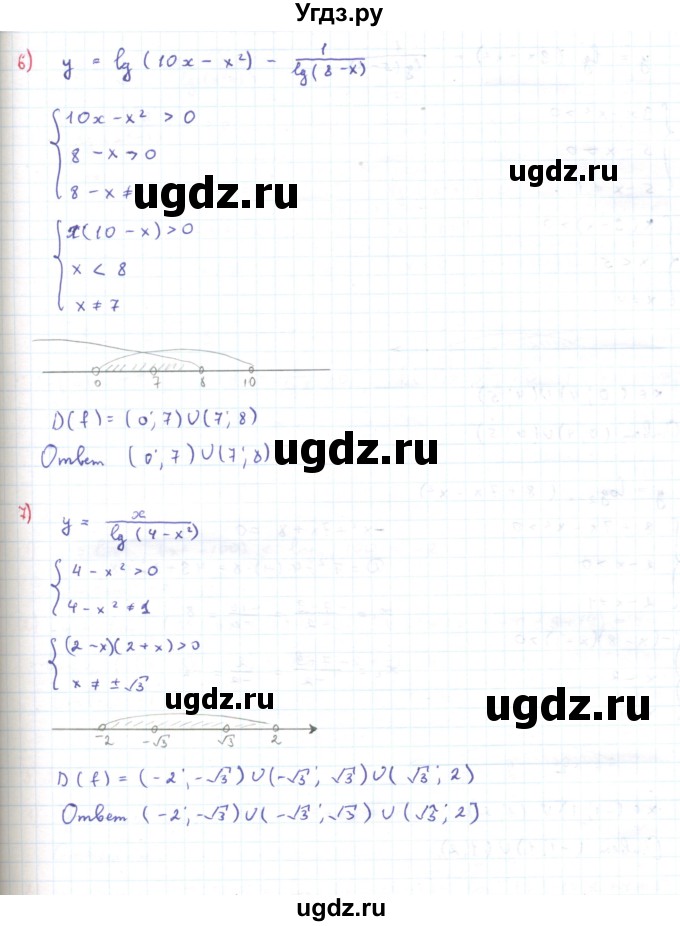 Угдз.ру
6) y = lg(10x - x²) - 1/lg(8-x)
10x - x² > 0
8 - x > 0
ugdz.ru
8 - x ≠
ugdz.ru
x(10 - x) > 0
x < 8
x ≠ 7
0 7 8 10
D(f) = (0; 7)U(7; 8)
Ответ (0; 7)U(7; 8)
ugdz.ru
7) y = x/lg(4-x²)
4 - x² > 0
4 - x² ≠ 1
(2 - x)(2 + x) > 0
x ≠ ±√3
ugdz.ru
ugdz.ru
-2 -√3 √3 2
D(f) = (-2; -√3)U(-√3; √3)U(√3; 2)
Ответ (-2; -√3)U(-√3; √3)U(√3; 2]
ugdz.ru